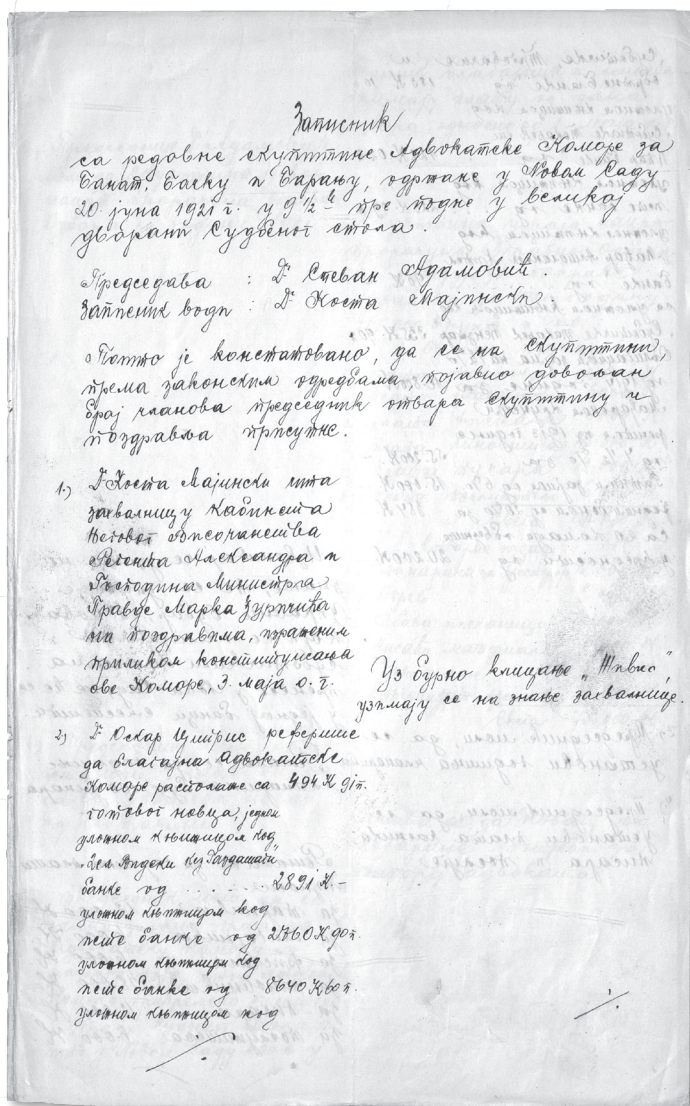 Записник
са редовне скупштине Адвокатске Коморе за
Банат, Бачку и Барању, одржане у Новом Саду
20. јуна 1921 г. у 9 1/2 h пре подне у великој
дворани Судбеног стола.
Председава : Dr Стеван Адамовић.
Записник води : Dr Коста Мајински.
Пошто је констатовано, да се на скупштини,
према законским одредбама, појавио довољан
број чланова председник отвара скупштину и
поздравља присутне.
1.) Dr Коста Мајински чита
захвалницу Кабинета
Његовог Височанства
Регента Александра и
Господина Министра
Правде Марка Ђуричића
на поздравима, израженим
приликом конституисања
ове Коморе, 3. маја о. г.
Уз бурно клицање „Живио“,
узимају се на знање захвалнице.
2.) Dr Оскар реферише
да благајна Адвокатске
Коморе располаже са 494 К 91 п.
готовог новца, једном
уложном књижицом код
банке од . . . . . . 2891 К –
уложном књижицом код
исте банке од 2760 К 90 п.
уложном књижицом код
исте банке од 8640 К 60 п.
уложном књижицом код
./.
./.